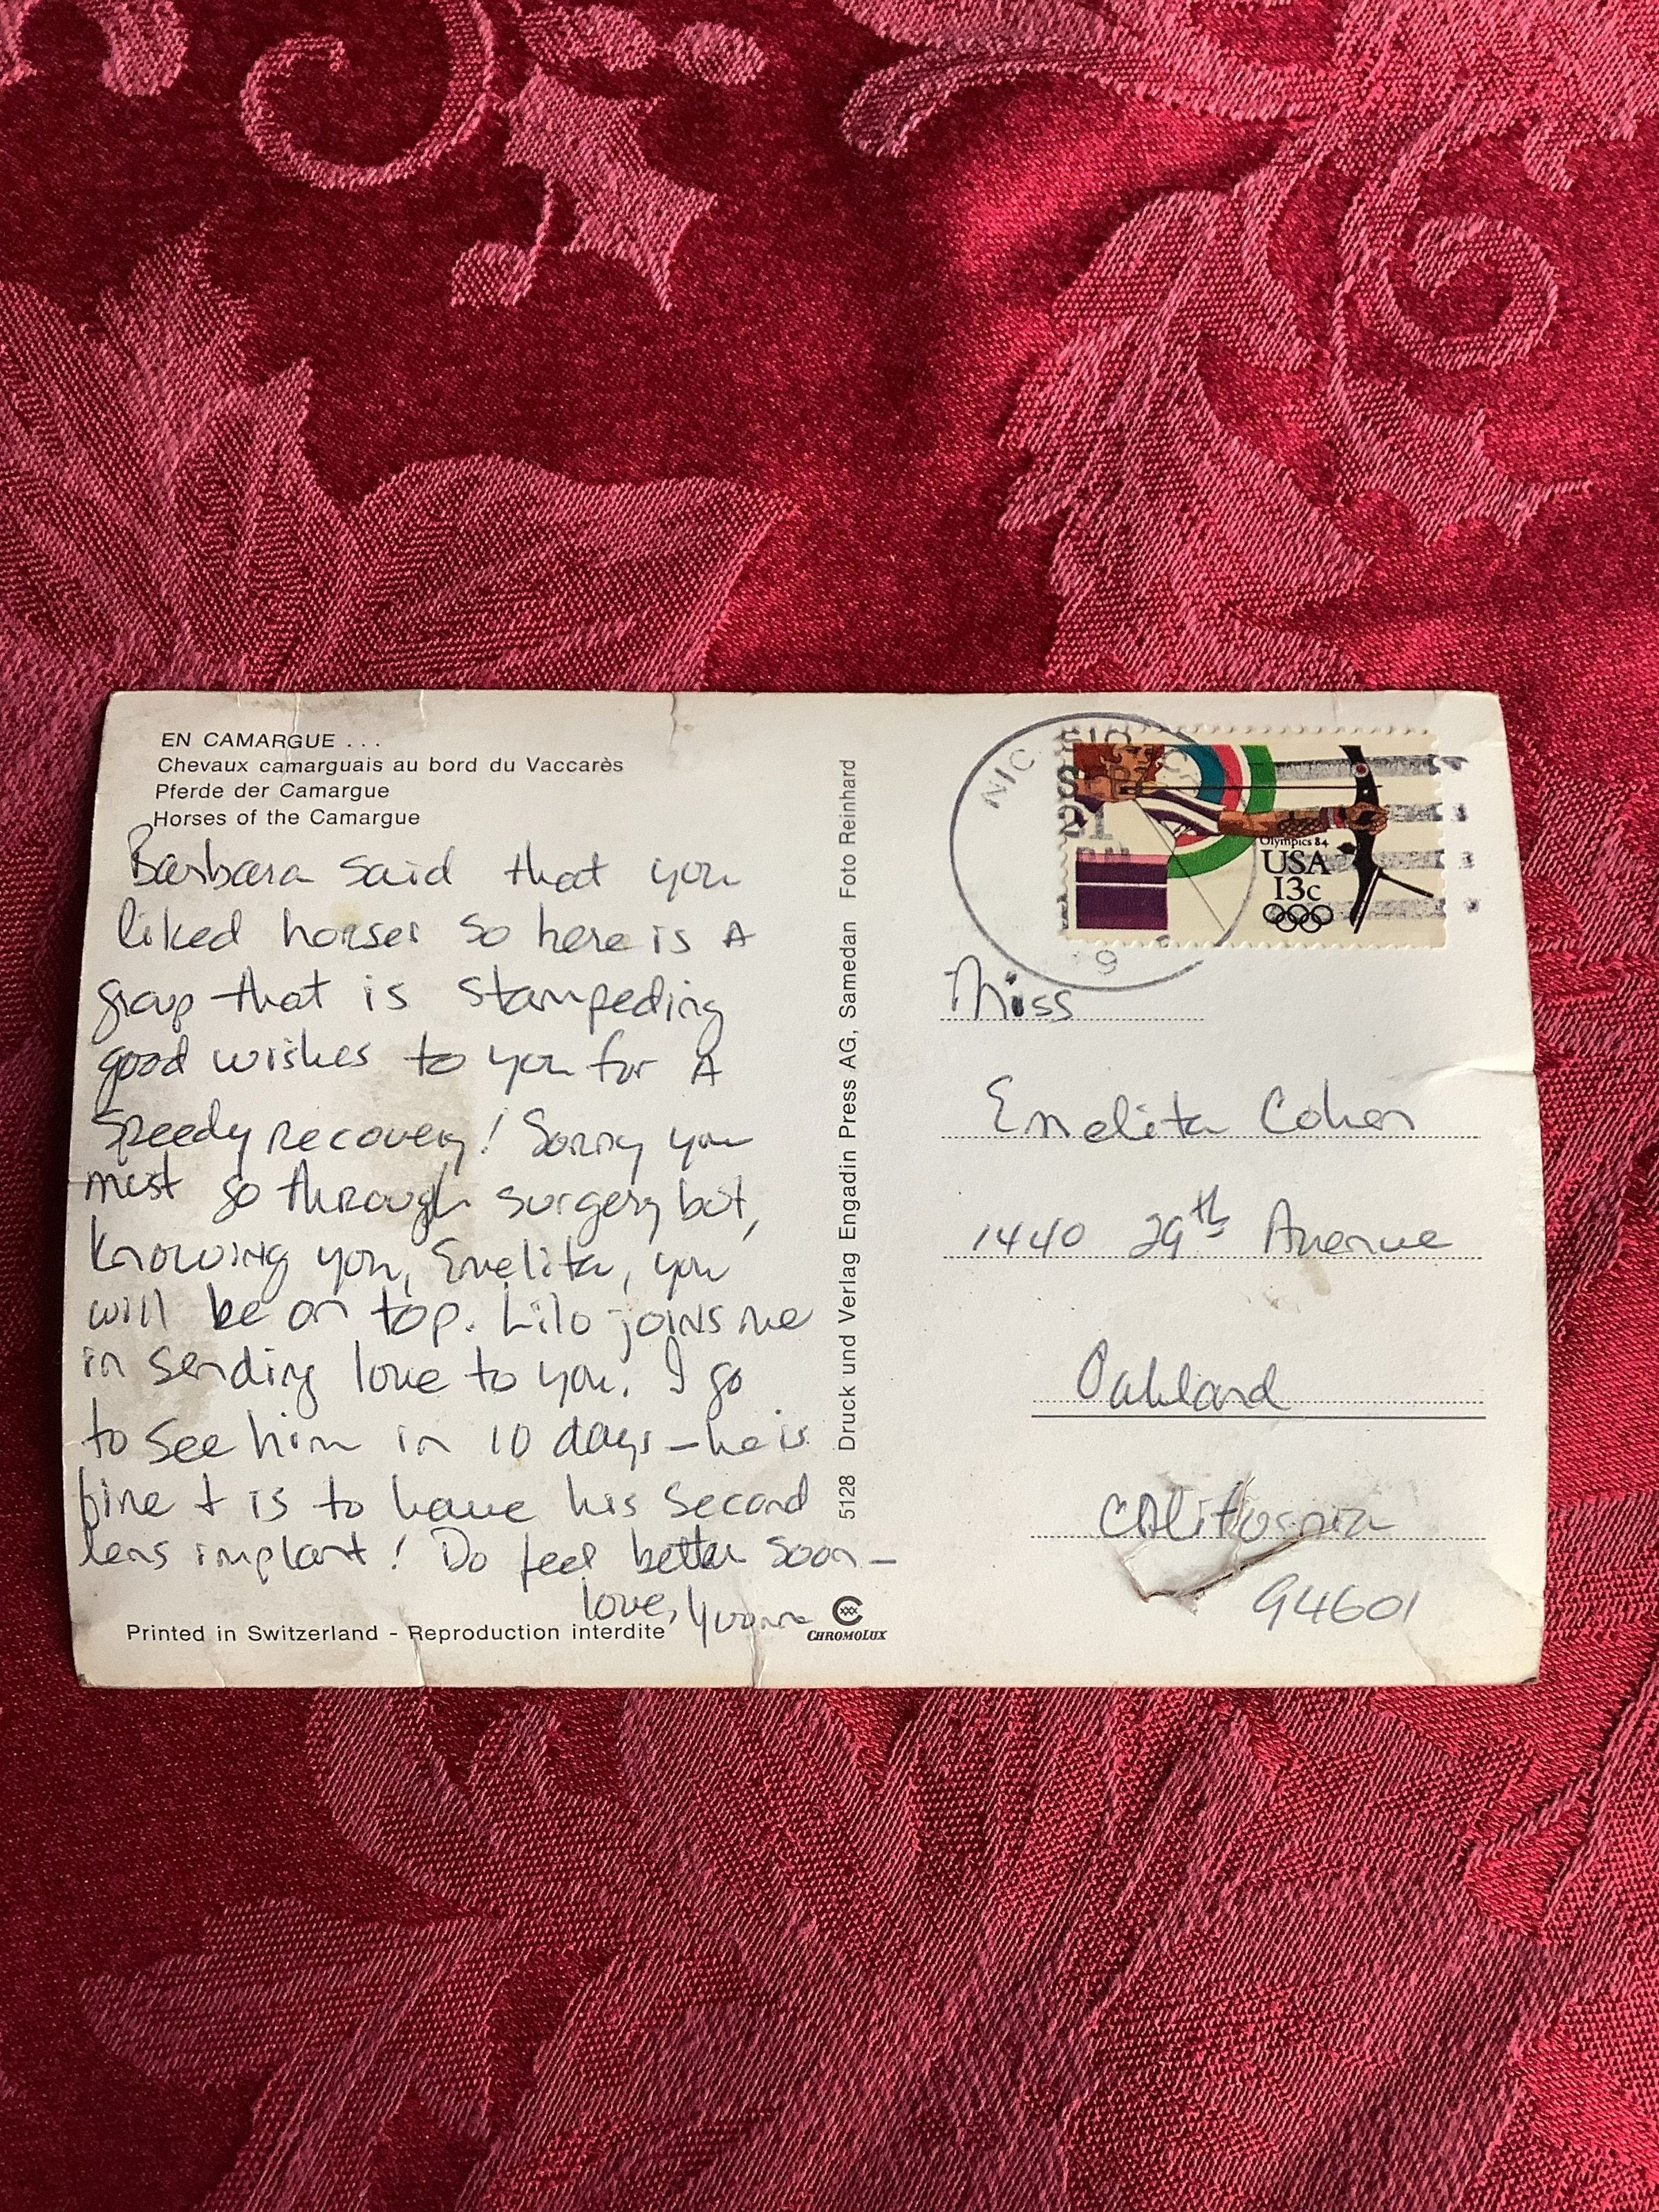 EN CAMARGUE . . .
Chevaux camarguais au bord du Vaccarès
Pferde der Camargue
Horses of the Camargue
Barbara said that you
liked horses so here is A
group that is stampeding
good wishes to you for A
speedy recovery! Sorry you
must go through surgery but,
knowing you, Emelita, you
will be on top. Lilo joins me
in sending love to you. I go
to see him in 10 days – he is
fine + is to have his second
lens implant! Do feel better soon –
love, Yvonne
Printed in Switzerland - Reproduction interdite
CHROMOLUX
5128 Druck und Verlag Engadin Press AG, Samedan Foto Reinhard
Olympics 84
USA
13c
Miss
Emelita Cohen
1440 29th Avenue
Oakland
California
94601